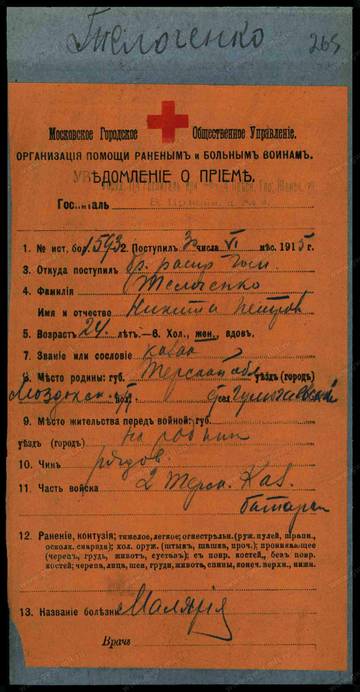 Телоченко 265
Московское Городское Общественное Управленіе.
ОРГАНИЗАЦІЯ ПОМОЩИ РАНЕНЫМЪ и БОЛЬНЫМЪ ВОИНАМЪ.
УВѢДОМЛЕНІЕ О ПРІЕМѢ.
Госпиталь
1. № ист. бол. 15932. Поступилъ 3 числа VI мѣс. 1915 г.
3. Откуда поступилъ
4. Фамилія Телоченко
Имя и отчество Никита Петров
5. Возрастъ 24 лѣтъ.—6. Хол., жен., вдов.
7. Званіе или сословіе казак
8. Мѣсто родины: губ. Терской обл уѣздъ (городъ)
9. Мѣсто жительства передъ войной: губ.
уѣздъ (городъ) на родинѣ
10. Чинъ рядов.
11. Часть войска 2 Терск. Каз.
батарея
12. Раненіе, контузія; тяжелое, легкое; огнестрѣльн. (руж. пулей, шрапн., осколк. снаряда); хол. оруж. (штыв, шашка, проч.); проникающее (черепъ, грудь, животъ, суставъ); съ повр. костей., безъ повр. костей; черепа, лица, шеи, груди, живота, спины, конеч. верхн., нижн.
13. Названіе болѣзни Малярія
Врачъ